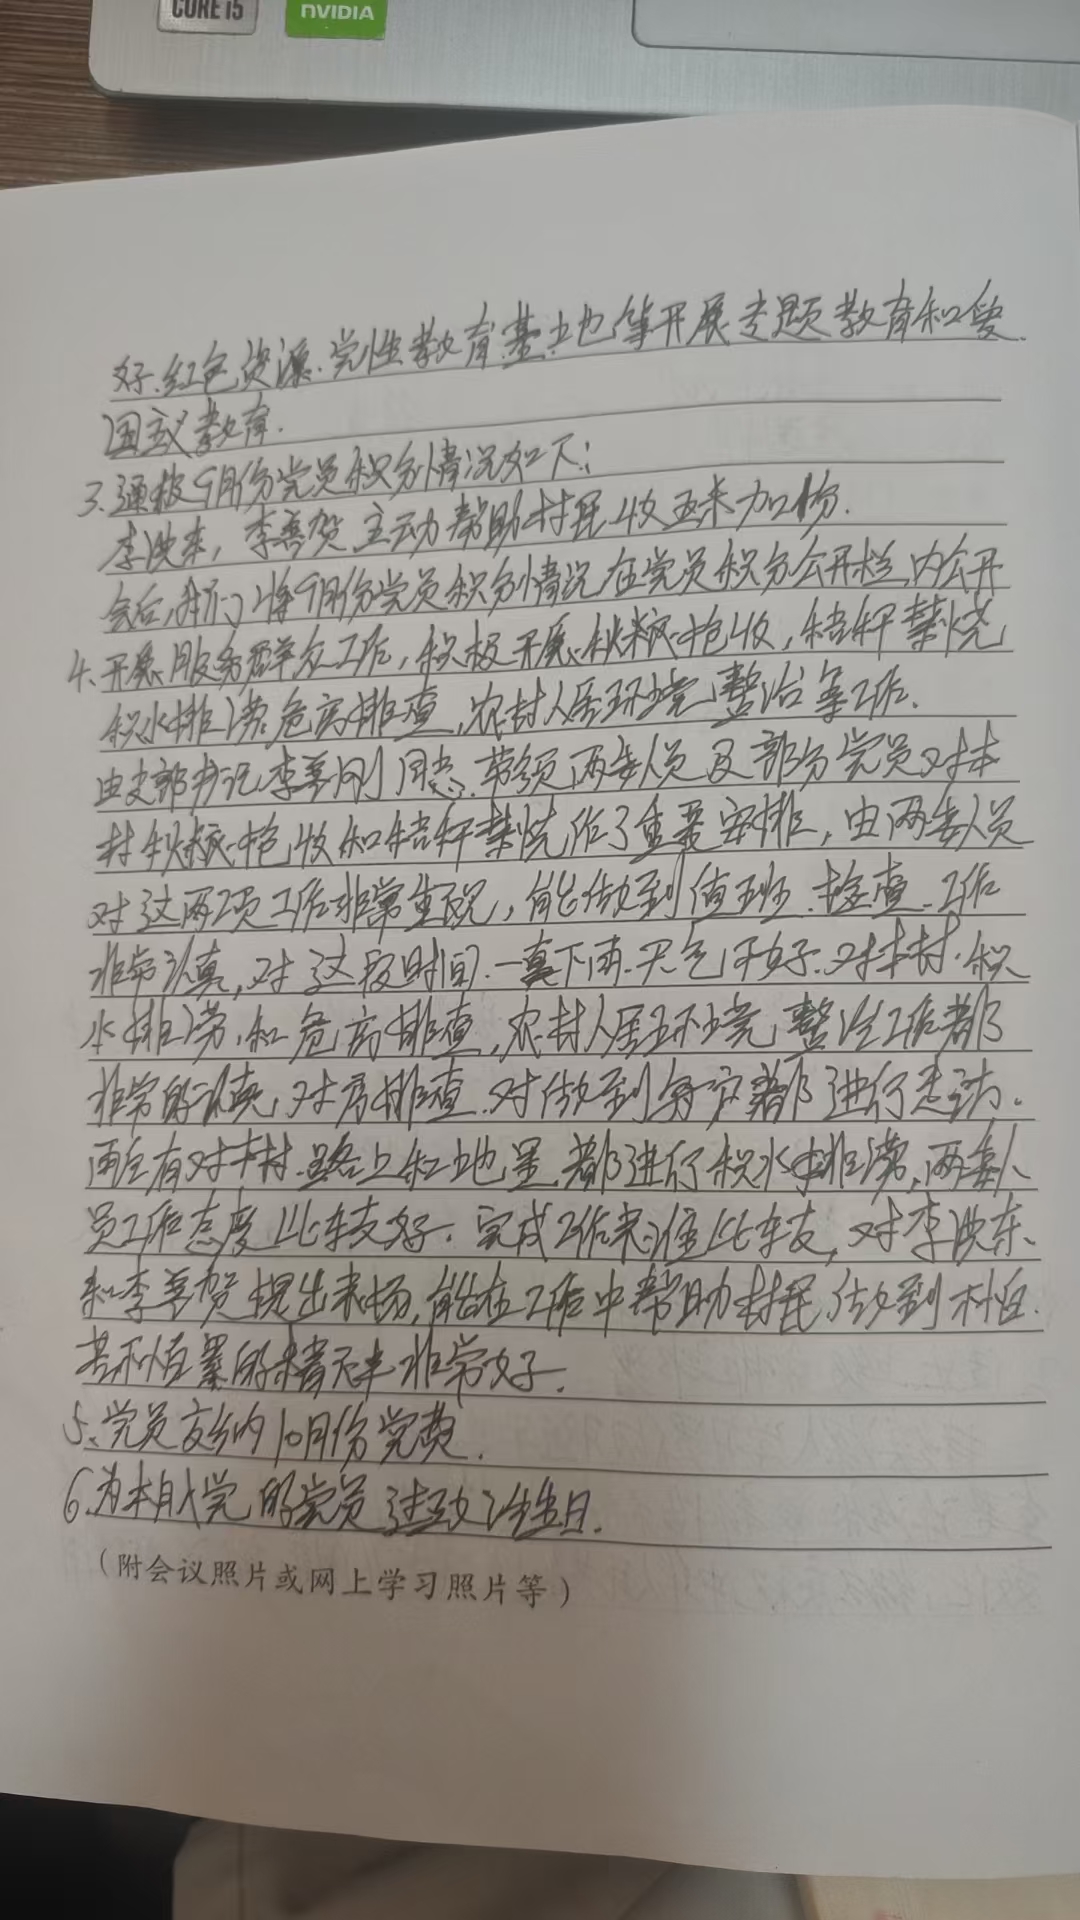 CORE i5
NVIDIA
好、红色资源、党性教育基地等开展专题教育和爱
国主义教育.
3.通报9月份党员积分情况如下:
李洪东,李善贺主动帮助村民收玉米加1份.
会后,我们将9月份党员积分情况在党员积分公开栏内公开
4.开展服务群众工作,积极开展秋粮抢收,秸秆禁烧
积水排涝危房排查,农村人居环境整治等工作.
由支部书记李善刚同志.带领两委人员及部分党员对本
村秋粮抢收和秸秆禁烧作了重要安排,由两委人员
对这两项工作非常重视,能做到值班.检查.工作
非常认真,对这段时间.一直下雨.天气不好.对本村.积
水排涝,和危房排查,农村人居环境整治工作都
非常的认真,对房排查.对做到每家都进行走访.
雨后有对本村.路上和地里都进行积水排涝,两委人
员工作态度比较好.完成工作来说比较,对李洪东、
和李善贺提出表扬,能在工作中帮助村民,做到不怕
苦不怕累的精神非常好.
5、党员交纳10月份党费.
6.为本月入党的党员过政治生日.
(附会议照片或网上学习照片等)